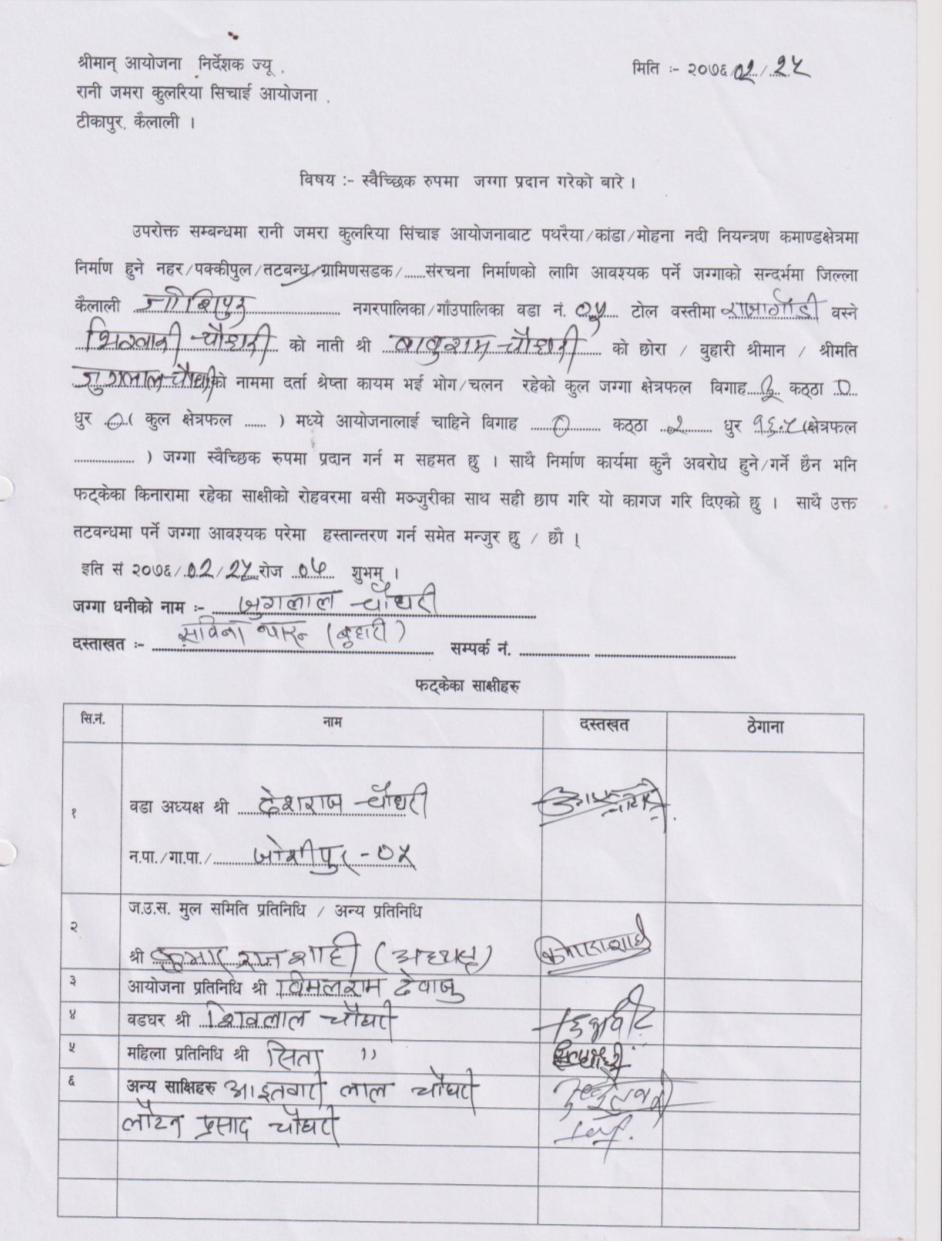 श्रीमान् आयोजना निर्देशक ज्यू ,
मिति :- २०७६/०२/२५
रानी जमरा कुलरिया सिचाई आयोजना ,
टीकापुर, कैलाली ।
विषय :- स्वैच्छिक रुपमा जग्गा प्रदान गरेको बारे ।
उपरोक्त सम्बन्धमा रानी जमरा कुलरिया सिंचाइ आयोजनाबाट पथरैया/कांडा/मोहना नदी नियन्त्रण कमाण्डक्षेत्रमा
निर्माण हुने नहर/पक्कीपुल/तटबन्ध/ग्रामिणसडक/......संरचना निर्माणको लागि आवश्यक पर्ने जग्गाको सन्दर्भमा जिल्ला
कैलाली जोशिपुर नगरपालिका/गाँउपालिका वडा नं. ०५ टोल वस्तीमा वस्ने
भिखारी चौधरी को नाती श्री बाबुराम चौधरी को छोरा / बुहारी श्रीमान / श्रीमति
जुगलाल चौधरी को नाममा दर्ता श्रेष्ता कायम भई भोग/चलन रहेको कुल जग्गा क्षेत्रफल विगाह कठ्ठा ०
धुर ०( कुल क्षेत्रफल ...... ) मध्ये आयोजनालाई चाहिने विगाह ० कठ्ठा २ धुर १६.५ (क्षेत्रफल
.................. ) जग्गा स्वैच्छिक रुपमा प्रदान गर्न म सहमत छु । साथै निर्माण कार्यमा कुनै अवरोध हुने/गर्ने छैन भनि
फट्केका किनारामा रहेका साक्षीको रोहवरमा बसी मञ्जुरीका साथ सही छाप गरि यो कागज गरि दिएको छु । साथै उक्त
तटबन्धमा पर्ने जग्गा आवश्यक परेमा हस्तान्तरण गर्न समेत मन्जुर छु / छौ ।
इति सं २०७६/०२/२५ रोज ०५ शुभम् ।
जग्गा धनीको नाम :- जुगलाल चौधरी
दस्ताखत :- सविना थारु (बुहारी) सम्पर्क नं. ..................
फट्केका साक्षीहरु
सि.नं. नाम दस्तखत ठेगाना
१ वडा अध्यक्ष श्री देशराज चौधरी
न.पा./गा.पा./ जोशीपुर - ०५
२ ज.उ.स. मुल समिति प्रतिनिधि / अन्य प्रतिनिधि
श्री कुमार राज शाही (अध्यक्ष)
३ आयोजना प्रतिनिधि श्री विमलराम देवाजु
४ वडघर श्री शिवलाल चौधरी
५ महिला प्रतिनिधि श्री सिता ,,
६ अन्य साक्षिहरु आइतवारी लाल चौधरी
लौटन प्रसाद चौधरी